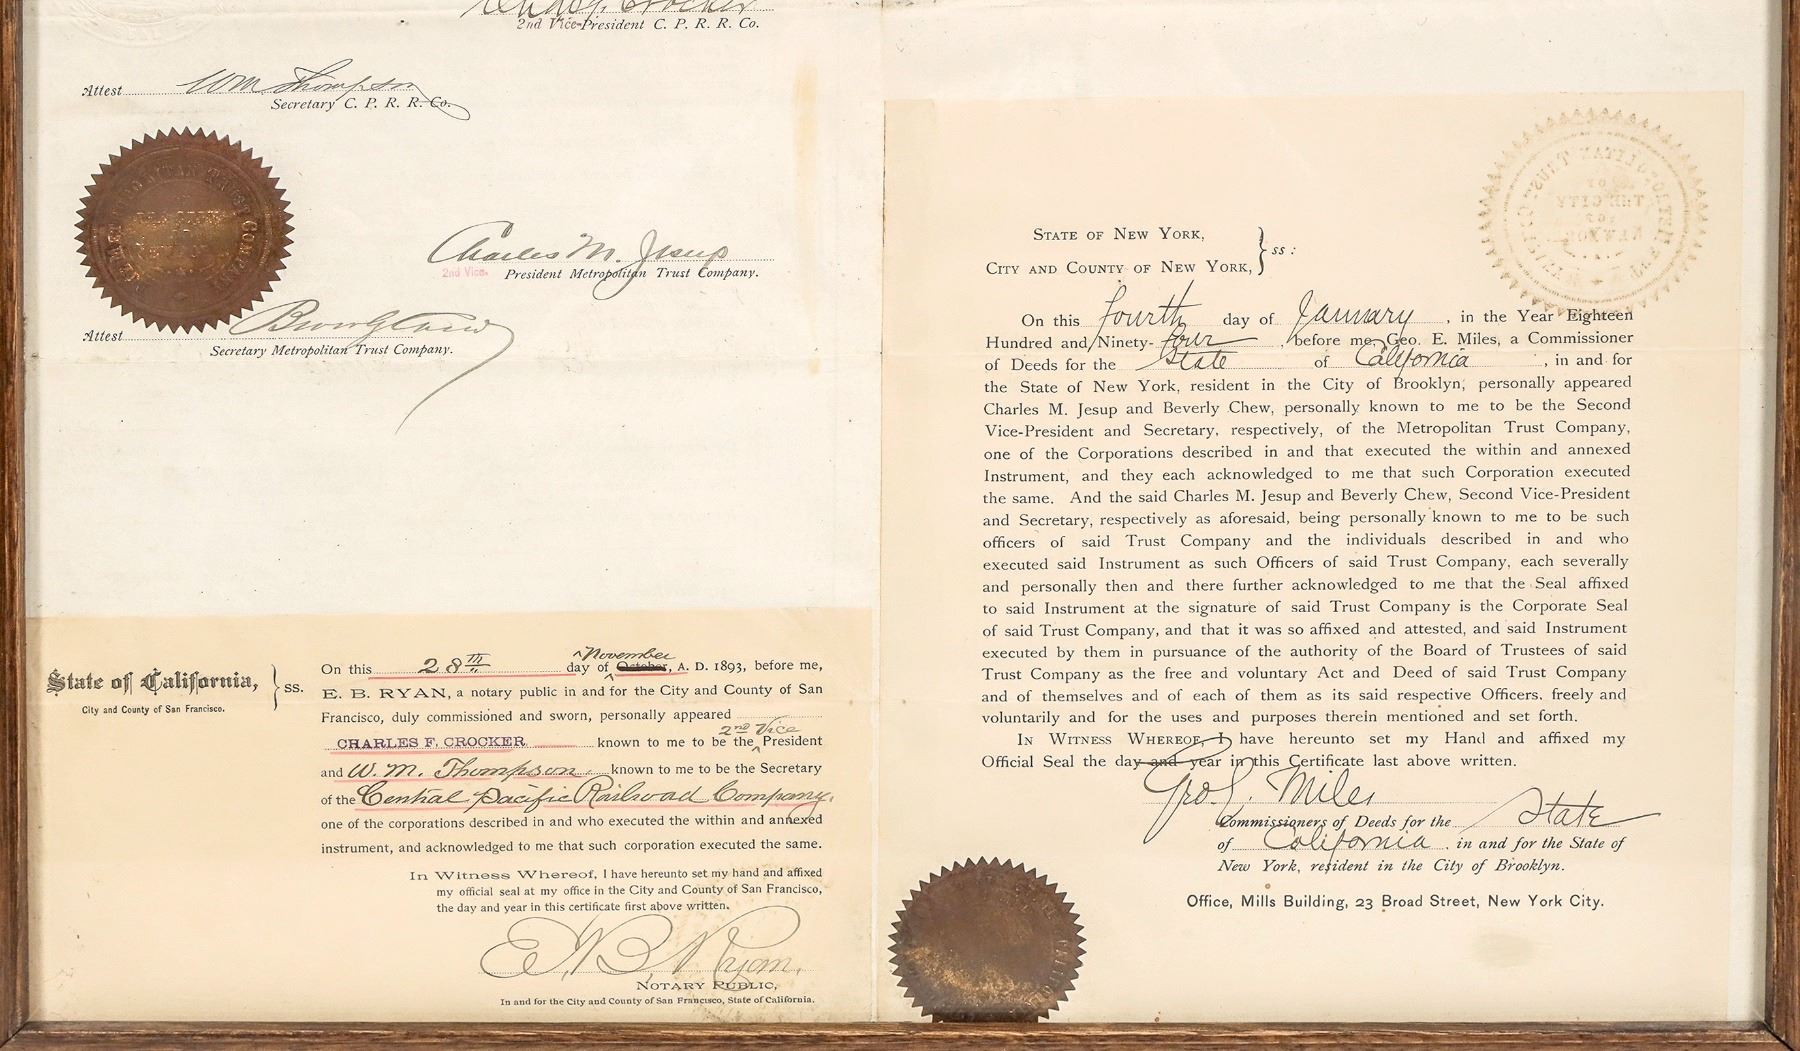 2nd Vice-President C. P. R. R. Co.
Attest Wm Thompson
Secretary C. P. R. R. Co.
METROPOLITAN TRUST COMPANY
Charles M. Jesup
2nd Vice. President Metropolitan Trust Company.
Attest
Secretary Metropolitan Trust Company.
State of California,
City and County of San Francisco.
} ss.
On this 28th day of November October, A. D. 1893, before me,
E. B. RYAN, a notary public in and for the City and County of San
Francisco, duly commissioned and sworn, personally appeared
CHARLES F. CROCKER known to me to be the 2nd Vice President
and W. M. Thompson known to me to be the Secretary
of the Central Pacific Railroad Company,
one of the corporations described in and who executed the within and annexed
instrument, and acknowledged to me that such corporation executed the same.
In Witness Whereof, I have hereunto set my hand and affixed
my official seal at my office in the City and County of San Francisco,
the day and year in this certificate first above written.
E. B. Ryan.
NOTARY PUBLIC,
In and for the City and County of San Francisco, State of California.
STATE OF NEW YORK,
CITY AND COUNTY OF NEW YORK, } ss :
On this fourth day of January, in the Year Eighteen
Hundred and Ninety-four, before me, Geo. E. Miles, a Commissioner
of Deeds for the State of California, in and for
the State of New York, resident in the City of Brooklyn, personally appeared
Charles M. Jesup and Beverly Chew, personally known to me to be the Second
Vice-President and Secretary, respectively, of the Metropolitan Trust Company,
one of the Corporations described in and that executed the within and annexed
Instrument, and they each acknowledged to me that such Corporation executed
the same. And the said Charles M. Jesup and Beverly Chew, Second Vice-President
and Secretary, respectively as aforesaid, being personally known to me to be such
officers of said Trust Company and the individuals described in and who
executed said Instrument as such Officers of said Trust Company, each severally
and personally then and there further acknowledged to me that the Seal affixed
to said Instrument at the signature of said Trust Company is the Corporate Seal
of said Trust Company, and that it was so affixed and attested, and said Instrument
executed by them in pursuance of the authority of the Board of Trustees of said
Trust Company as the free and voluntary Act and Deed of said Trust Company
and of themselves and of each of them as its said respective Officers. freely and
voluntarily and for the uses and purposes therein mentioned and set forth.
IN WITNESS WHEREOF, I have hereunto set my Hand and affixed my
Official Seal the day and year in this Certificate last above written.
Geo. E. Miles
Commissioners of Deeds for the State
of California in and for the State of
New York, resident in the City of Brooklyn.
Office, Mills Building, 23 Broad Street, New York City.